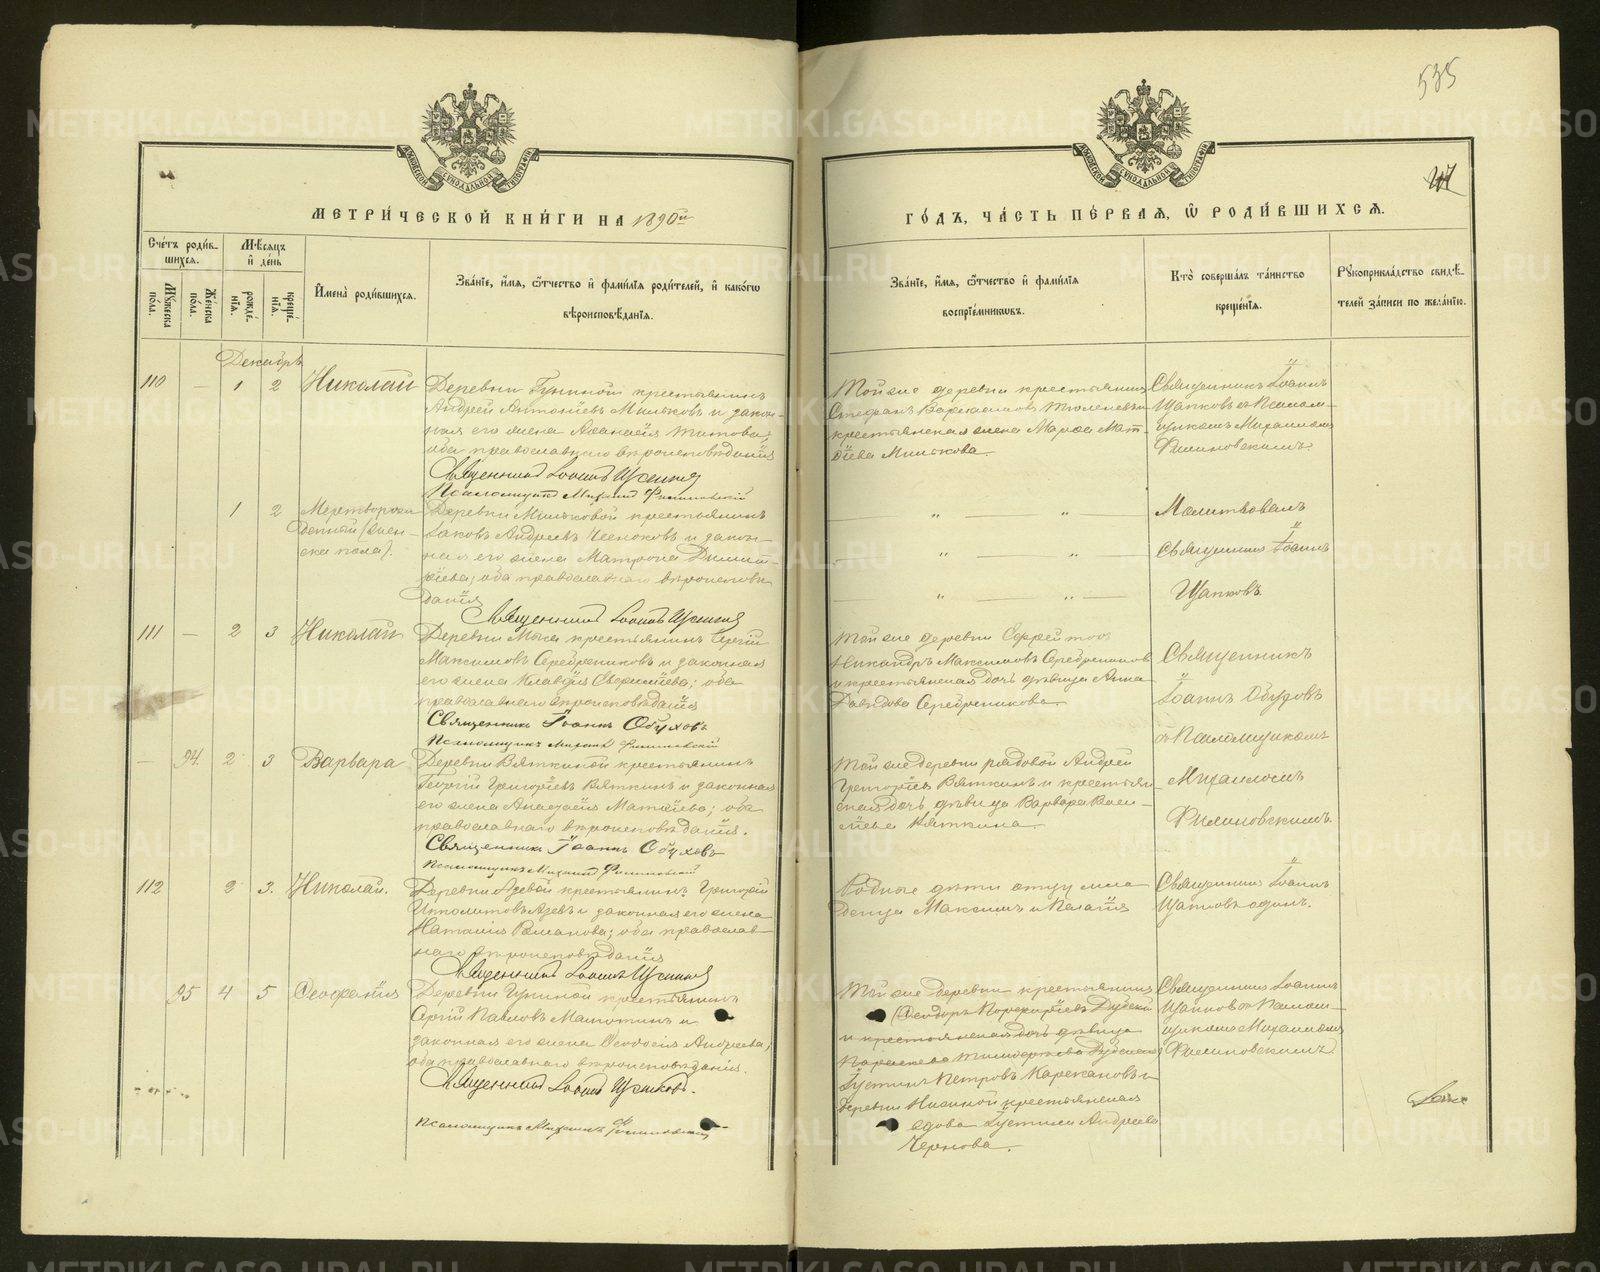 535
МЕТРИ́ЧЕСКОЙ КНИ́ГИ НА 1890й
ГО́ДЪ, ЧА́СТЬ ПЕ́РВАЯ, Ѡ РОДИ́ВШИХСЯ.
Сче́тъ роди́в-
шихся.
Мꙋжеска
по́ла.
Же́нска
по́ла.
Мѣ́сяцъ
и҆ де́нь
рожде́-
нїя.
креще́-
нїя.
И҆мена̀ роди́вшихся.
Зва́нїе, и҆́мя, ѻ҆́тчество и҆ фами́лїя роди́телей, и҆ како́гѡ
вѣроисповѣ́данїя.
Зва́нїе, и҆́мя, ѻ҆́тчество и҆ фами́лїя
воспрїе́мниковъ.
Кто̀ соверша́лъ та́инство
креще́нїя.
Рꙋкоприкла́дство свидѣ́-
телей за́писи по жела́нїю.
Декабрь
110 — 1 2 Николай
Деревни крестьянинъ
Андрей Антонїевъ Мильковъ и закон-
ная его жена Аѳанасїя Титова,
оба православнаго вѣроисповѣданїя
Священникъ Іоаннъ Щапковъ
Псаломщикъ Михаилъ Филиновскій
Той же деревни крестьянинъ
Стефанъ
крестьянская жена Марѳа Мат-
ѳїева Милькова.
Священникъ Іоаннъ
Щапковъ съ Псалом-
щикомъ Михаиломъ
Филиновскимъ.
1 2 Мертворож
денный (жен-
ска пола).
Деревни Мильковой крестьянинъ
Іаковъ Андреевъ и закон-
ная его жена Матрона Димит-
рїева; оба православнаго вѣроисповѣ
данїя
Священникъ Іоаннъ Щапковъ
— „ — „ —
— „ — „ —
— „ — „ —
Молитвовалъ
Священникъ Іоаннъ
Щапковъ
111 — 2 3 Николай
Деревни Мыса крестьянинъ Сергій
Максимовъ Серебрениковъ и законная
его жена Клавдїя; оба
православнаго вѣроисповѣданїя
Священникъ Іоаннъ Обуховъ
Псаломщикъ Михаилъ Филиновскій
Той же деревни Ефрейторъ
Никандръ Максимовъ Серебрениковъ
и крестьянская дочь дѣвица Анна
Давидова Серебреникова
Священникъ
Іоаннъ Обуховъ
съ Псаломщикомъ
Михаиломъ
Филиновскимъ.
— 94. 2 3 Варвара
Деревни Вяткиной крестьянинъ
Георгій Григорїевъ Вяткинъ и законная
его жена Анастасїя Матѳїева; оба
православнаго вѣроисповѣданїя.
Священникъ Іоаннъ Обуховъ
Псаломщикъ Михаилъ Филиновскій
Той же деревни рядовой Андрей
Григорїевъ Вяткинъ и крестьян
ская дочь дѣвица Варвара Васи-
лїева Вяткина.
112 2 3. Николай.
Деревни Азевой крестьянинъ Григорій
Ипполитовъ Азевъ и законная его жена
Наталия Романова; оба православ-
наго вѣроисповѣданїя
Священникъ Іоаннъ Щапковъ
Родные дѣти отцу мла-
денца Максимъ и Пелагїя
Священникъ Іоаннъ
Щапковъ одинъ.
95 4 5 Ѳеофанїя
Деревни крестьянинъ
Сергій Павловъ и
законная его жена Ѳеодосїя Андреева;
оба православнаго вѣроисповѣданїя.
Священникъ Іоаннъ Щапковъ.
Псаломщикъ Михаилъ Филиновскій
Той же деревни крестьянинъ
(Ѳеодоръ Порфирїевъ
и крестьянская дочь дѣвица
Параскева Тимоѳеева
Іустинъ Петровъ и
деревни крестьянская
вдова Іустина Андреева
Чернова.
Священникъ Іоаннъ
Щапковъ съ Псалом-
щикомъ Михаиломъ
Филиновскимъ
METRIKI.GASO-URAL.RU